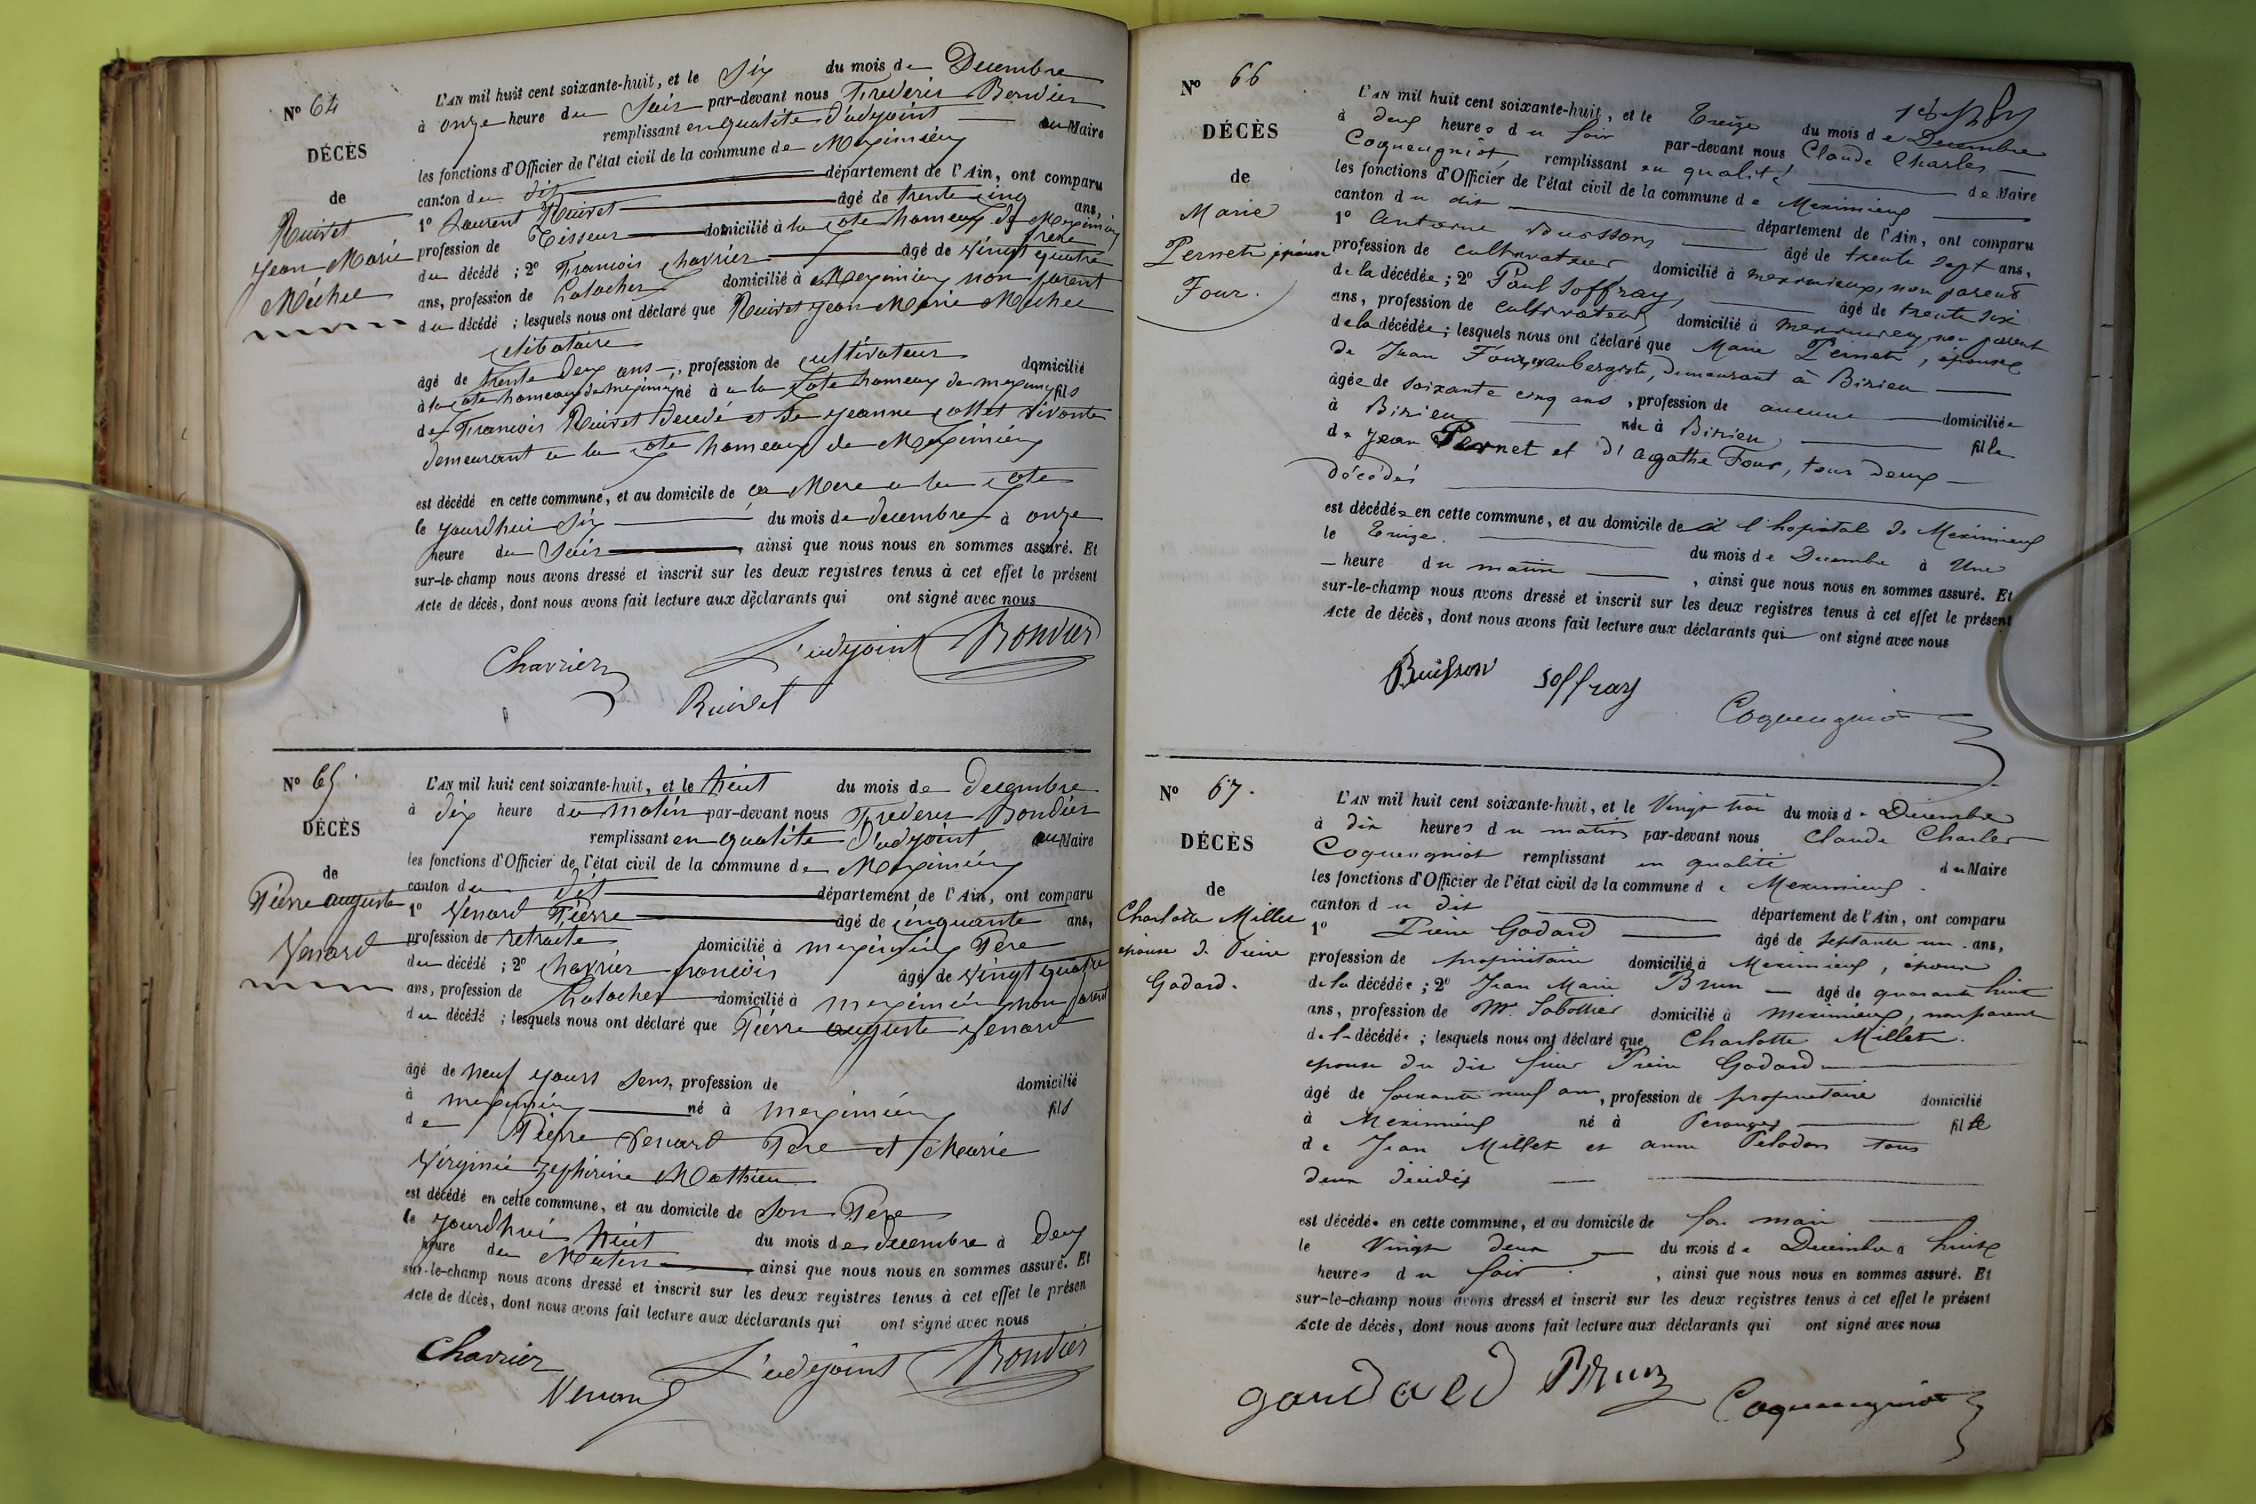 No 64
DÉCÈS
de
Ruivet
Jean Marie
Michel
L'AN mil huit cent soixante-huit, et le Six du mois de Decembre
à onze heure du Soir par-devant nous Frederic Bondier
remplissant en qualité d'adjoint au Maire
les fonctions d'Officier de l'état civil de la commune de Meximieux
canton du dit département de l'Ain, ont comparu
1o Laurent Ruivet âgé de trente cinq ans,
profession de Tisseur domicilié à la cote hameau de Meximieux frere
du décédé ; 2o Francois Chavrier âgé de vingt quatre
ans, profession de domicilié à Meximieux non parent
du décédé ; lesquels nous ont déclaré que Ruivet Jean Marie Michel
celibataire
âgé de trente deux ans, profession de cultivateur domicilié
à la cote hameau de Meximieux né à a la Cote hameau de Meximieux fils
de Francois Ruivet Decedé et de Jeanne Collet vivante
demeurant a la cote hameau de Meximieux
est décédé en cette commune, et au domicile de sa Mere a la cote
le jourdhui Six du mois de decembre à onze
heure du Soir, ainsi que nous nous en sommes assuré. Et
sur-le-champ nous avons dressé et inscrit sur les deux registres tenus à cet effet le présent
Acte de décès, dont nous avons fait lecture aux déclarants qui ont signé avec nous
Chavrier L'adjoint Bondier
Ruivet
No 65
DÉCÈS
de
Pierre auguste
Venard
L'AN mil huit cent soixante-huit, et le huit du mois de decembre
à dix heure du matin par-devant nous Frederic Bondier
remplissant en qualité d'adjoint au Maire
les fonctions d'Officier de l'état civil de la commune de Meximieux
canton du dit département de l'Ain, ont comparu
1o Venard Pierre âgé de cinquante ans,
profession de retraite domicilié à meximieux Pere
du décédé ; 2o chavrier francois âgé de vingt quatre
ans, profession de domicilié à meximieux non parent
du décédé ; lesquels nous ont déclaré que Pierre auguste Venard
âgé de neuf jours sens, profession de domicilié
à meximieux né à meximieux fils
de Pierre Venard Pere et Marie
Virginie Zephirine Mathieu
est décédé en cette commune, et au domicile de son Pere
le jourdhui huit du mois de decembre à deux
heure du Matin ainsi que nous nous en sommes assuré. Et
sur-le-champ nous avons dressé et inscrit sur les deux registres tenus à cet effet le présen
Acte de décès, dont nous avons fait lecture aux déclarants qui ont signé avec nous
Chavrier L'adjoint Bondier
Venard
No 66
DÉCÈS
de
Marie
Pernet épouse
Four.
L'AN mil huit cent soixante-huit, et le Treize du mois de Decembre
à deux heures du soir par-devant nous Claude Charles
Coqueugniot, remplissant en qualité de Maire
les fonctions d'Officier de l'état civil de la commune de Meximieux
canton du dit département de l'Ain, ont comparu
1o Antoine Buisson âgé de trente sept ans,
profession de cultivateur domicilié à meximieux, non parent
de la décédée ; 2o Paul Soffray, âgé de trente six
ans, profession de cultivateur domicilié à meximieux, non parent
de la décédée ; lesquels nous ont déclaré que Marie Pernet, épouse
de Jean Four, aubergiste, demeurant à Birieu
âgée de soixante cinq ans, profession de aucune domiciliée
à Birieu née à Birieu fille
de Jean Pernet et d'Agathe Four, tous deux
décédés
est décédée en cette commune, et au domicile de à l'hopital de Meximieux
le Treize. du mois de Decembre à Une
heure du matin, ainsi que nous nous en sommes assuré. Et
sur-le-champ nous avons dressé et inscrit sur les deux registres tenus à cet effet le présent
Acte de décès, dont nous avons fait lecture aux déclarants qui ont signé avec nous
Buisson Soffray
Coqueugniot
No 67.
DÉCÈS
de
Charlotte Millet
épouse de Pierre
Godard.
L'AN mil huit cent soixante-huit, et le Vingt trois du mois de Décembre
à dix heures du matin par-devant nous Claude Charles
Coqueugniot remplissant en qualité de Maire
les fonctions d'Officier de l'état civil de la commune de Meximieux
canton du dit département de l'Ain, ont comparu
1o Pierre Godard âgé de septante un ans,
profession de propriétaire domicilié à Meximieux, époux
de la décédée ; 2o Jean Marie Brun âgé de quarante huit
ans, profession de Md Sabottier domicilié à meximieux, non parent
de la décédée ; lesquels nous ont déclaré que Charlotte Millet
épouse du dit sieur Pierre Godard
âgé de soixante neuf ans, profession de propriétaire domicilié
à Meximieux né à Perouges fille
de Jean Millet et anne Peladon tous
deux décédés
est décédée en cette commune, et au domicile de son mari
le Vingt deux du mois de Décembre à huit
heures du soir, ainsi que nous nous en sommes assuré. Et
sur-le-champ nous avons dressé et inscrit sur les deux registres tenus à cet effet le présent
Acte de décès, dont nous avons fait lecture aux déclarants qui ont signé avec nous
goudard Brun Coqueugniot